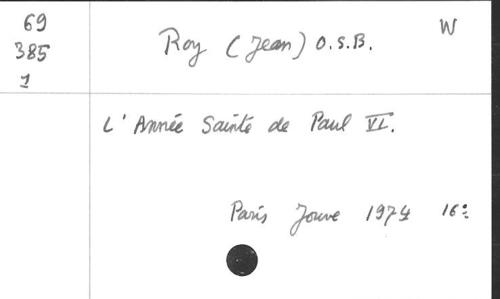 69
385
1
Roy (Jean) O.S.B.
W
L'Année Sainte de Paul VI.
Paris Jouve 1974 16º